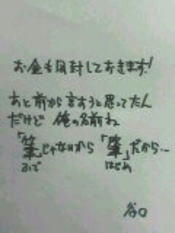 お金も同封しておきます!
あと前から言おうと思ってたん
だけど 俺の名前ね
「筆」じゃないから「肇」だから…
ふで はじめ
谷口